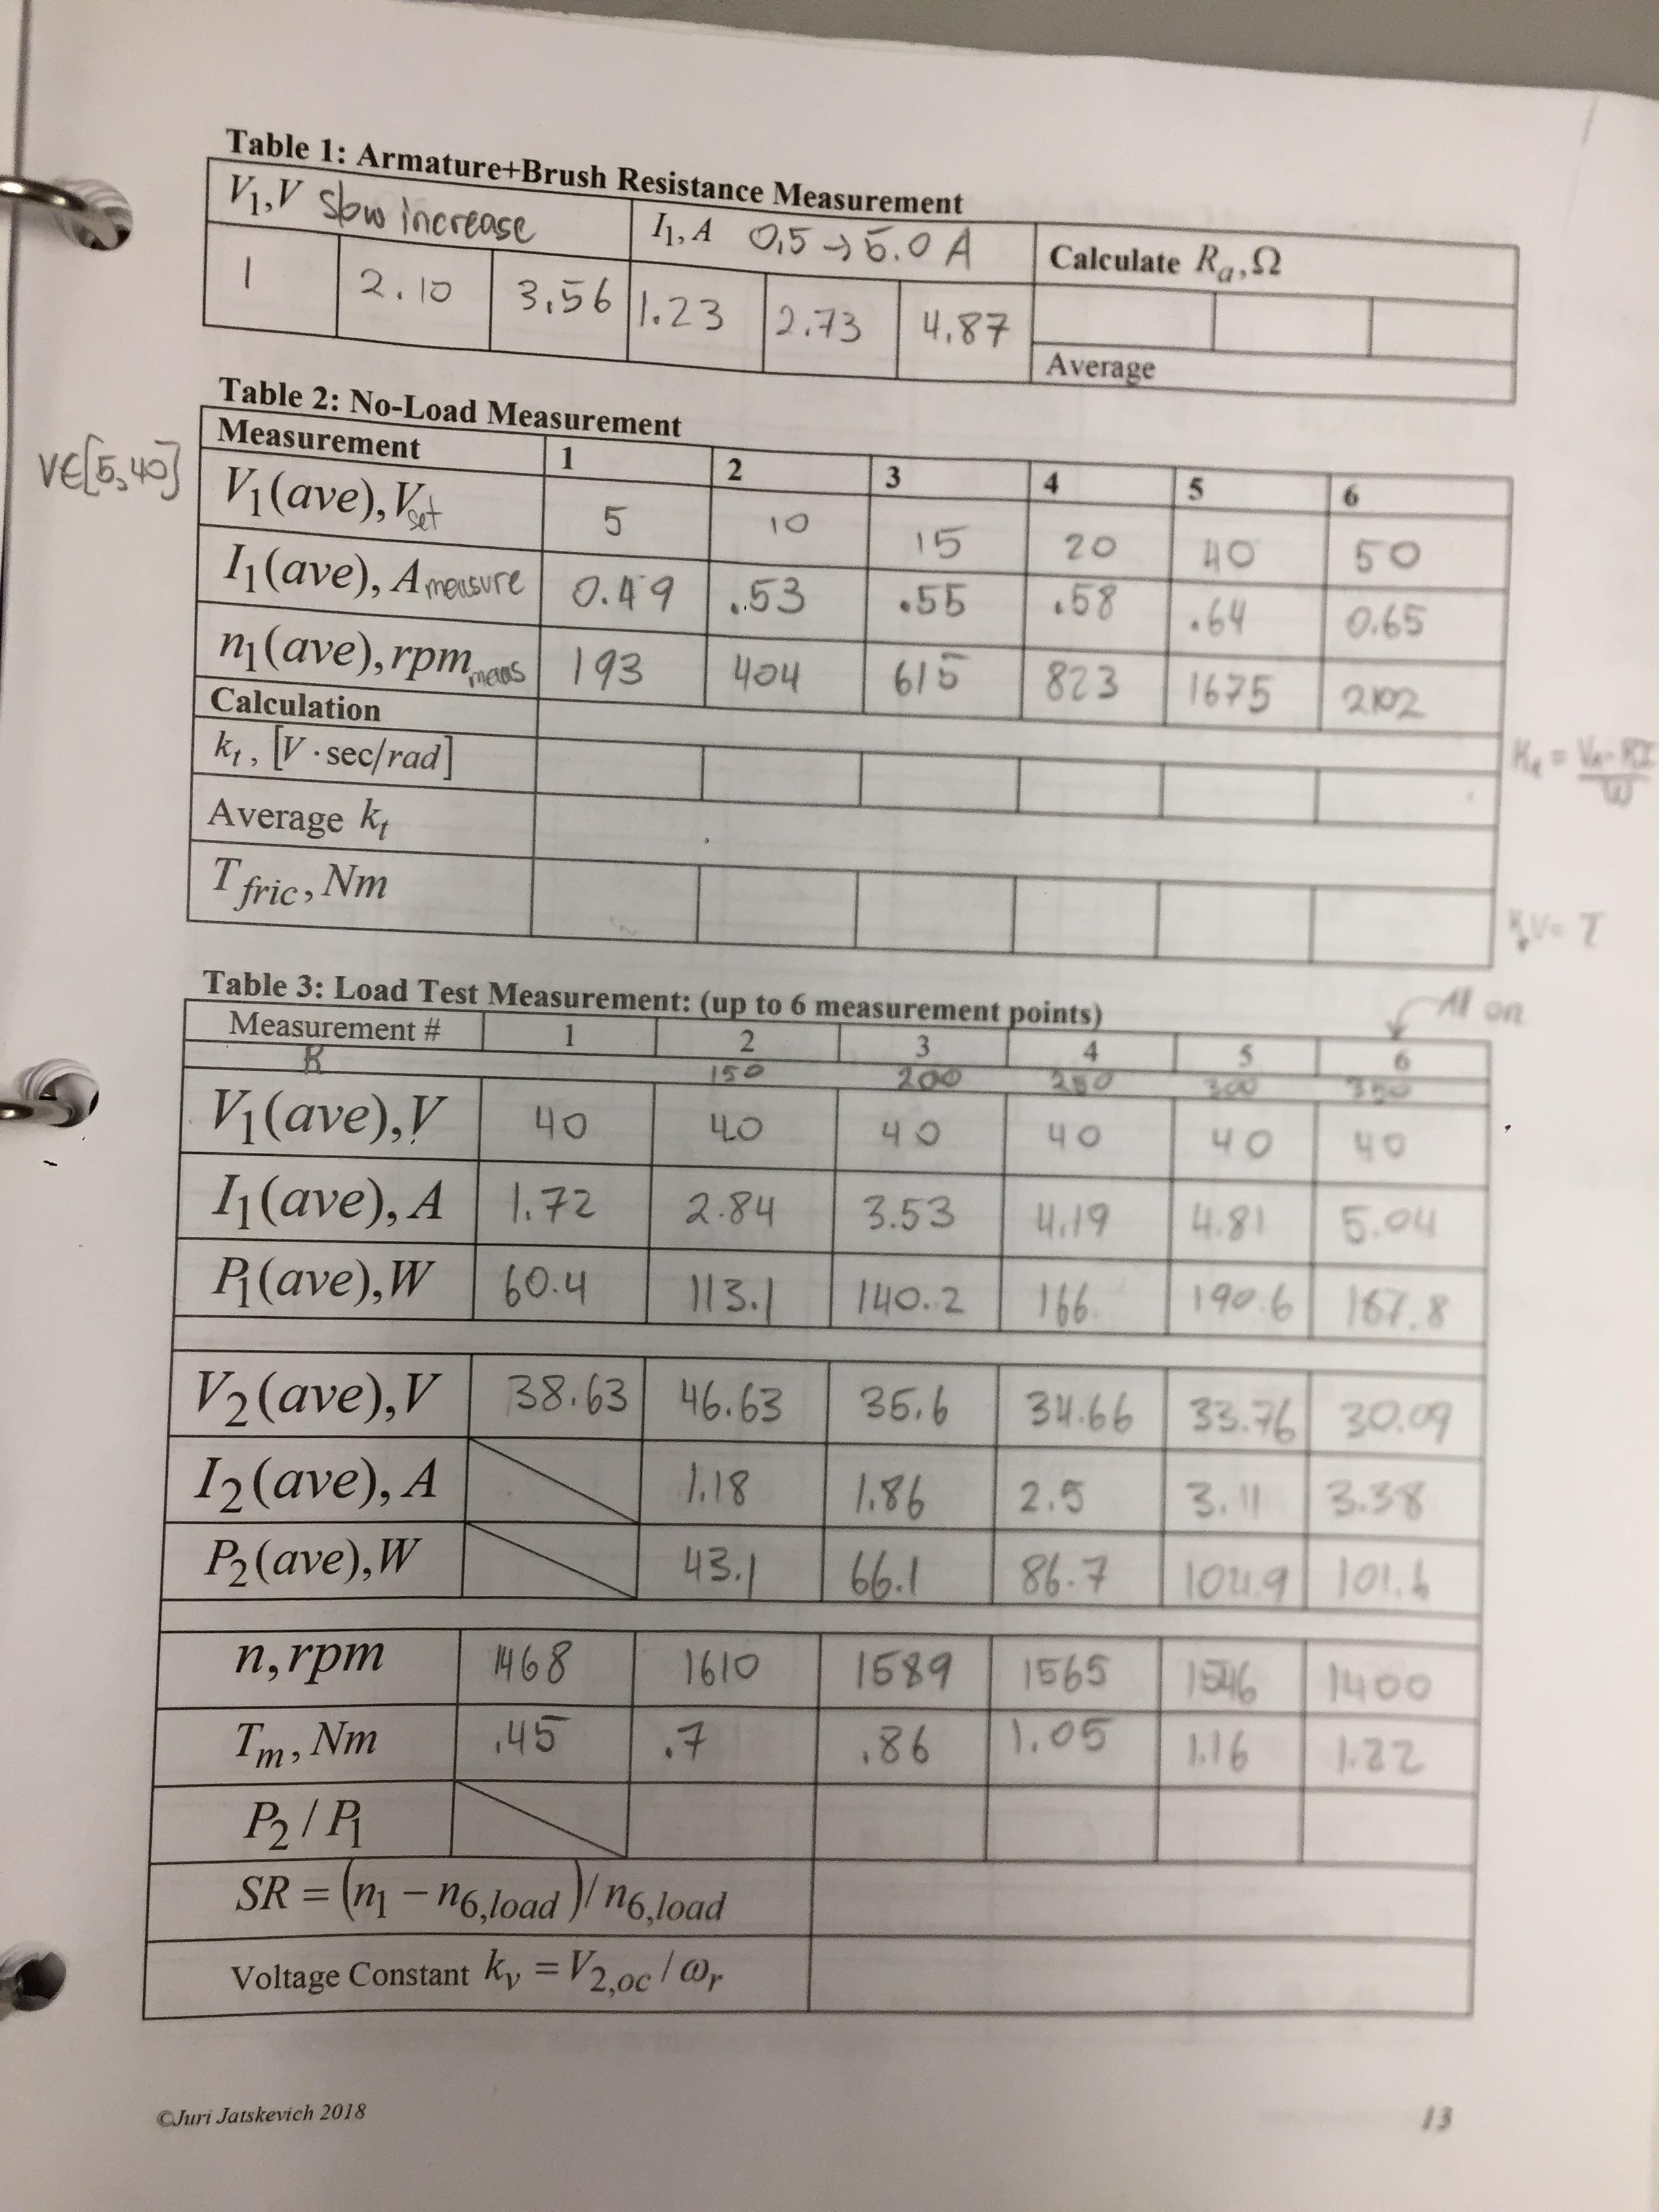 Table 1: Armature+Brush Resistance Measurement
V1, V slow increase I1, A 0,5 → 5.0 A Calculate Ra, Ω
1 2.10 3.56 1.23 2.73 4.87
Average
Table 2: No-Load Measurement
Measurement 1 2 3 4 5 6
V∈[5,40]
V1(ave), V set 5 10 15 20 40 50
I1(ave), A measure 0.49 .53 .55 .58 .64 0.65
n1(ave), rpm meas 193 404 615 823 1675 2102
Calculation
kt, [V·sec/rad]
Average kt
Tfric, Nm
Table 3: Load Test Measurement: (up to 6 measurement points)
All on
Measurement # 1 2 3 4 5 6
R 150 200 250 300 350
V1(ave), V 40 40 40 40 40 40
I1(ave), A 1.72 2.84 3.53 4.19 4.81 5.04
P1(ave), W 60.4 113.1 140.2 166. 190.6 167.8
V2(ave), V 38.63 46.63 35.6 34.66 33.76 30.09
I2(ave), A 1.18 1.86 2.5 3.11 3.38
P2(ave), W 43.1 66.1 86.7 104.9 101.6
n, rpm 1468 1610 1589 1565 1546 1400
Tm, Nm .45 .7 .86 1.05 1.16 1.22
P2 / P1
SR = (n1 − n6,load)/ n6,load
Voltage Constant kv = V2,oc / ωr
©Juri Jatskevich 2018
13